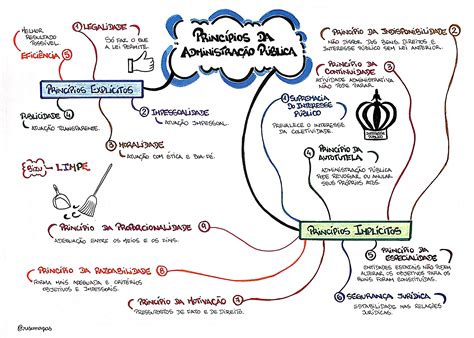 PRINCÍPIOS DA
ADMINISTRAÇÃO PÚBLICA
PRINCÍPIOS EXPLÍCITOS
1 LEGALIDADE
SÓ FAZ O QUE
A LEI PERMITE.
2 IMPESSOALIDADE
ATUAÇÃO IMPESSOAL.
3 MORALIDADE
ATUAÇÃO COM ÉTICA E BOA-FÉ.
PUBLICIDADE 4
ATUAÇÃO TRANSPARENTE.
MELHOR
RESULTADO
POSSÍVEL
EFICIÊNCIA 5
BIZU
LIMPE
PRINCÍPIOS IMPLÍCITOS
1 SUPREMACIA
DO INTERESSE
PÚBLICO
PREVALECE O INTERESSE
DA COLETIVIDADE.
INTERESSE
PÚBLICO
PRINCÍPIO DA INDISPONIBILIDADE 2
NÃO DISPOR DAS BENS, DIREITOS E
INTERESSE PÚBLICO SEM LEI ANTERIOR.
PRINCÍPIO DA 3
CONTINUIDADE
ATIVIDADE ADMINISTRATIVA
NÃO PODE PARAR.
4 PRINCÍPIO DA
AUTOTUTELA
ADMINISTRAÇÃO PÚBLICA
PODE REVOGAR OU ANULAR
SEUS PRÓPRIOS ATOS.
5 PRINCÍPIO DA
ESPECIALIDADE
ENTIDADES ESTATAIS NÃO PODEM
ALTERAR OS OBJETIVOS PARA OS
QUAIS FORAM CONSTITUÍDAS.
6 SEGURANÇA JURÍDICA
ESTABILIDADE NAS RELAÇÕES
JURÍDICAS.
PRINCÍPIO DA MOTIVAÇÃO 7
PRESSUPOSTOS DE FATO E DE DIREITO.
PRINCÍPIO DA RAZOABILIDADE 8
FORMA MAIS ADEQUADA E CRITÉRIOS
OBJETIVOS E IMPESSOAIS.
PRINCÍPIO DA PROPORCIONALIDADE 9
ADEQUAÇÃO ENTRE OS MEIOS E OS FINS.